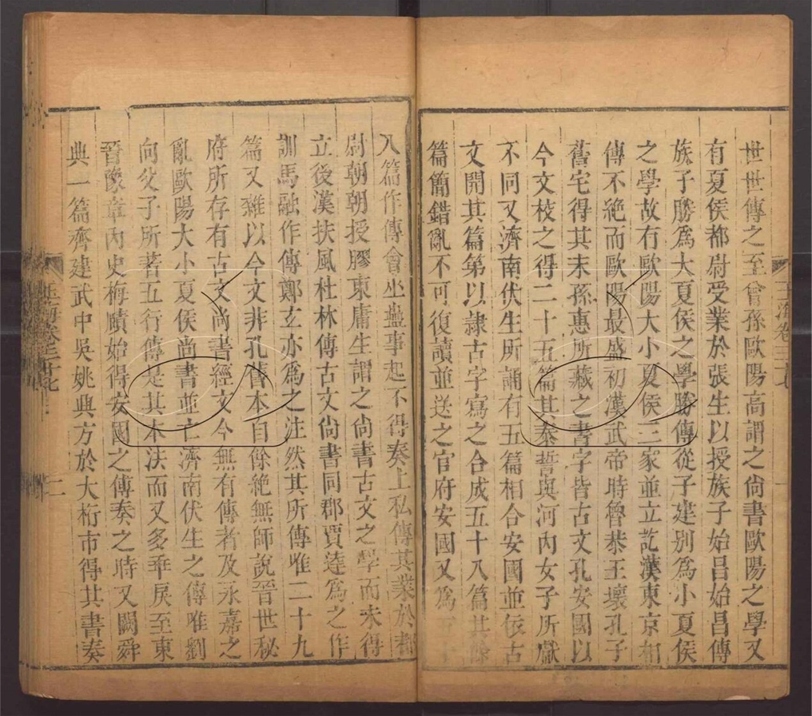 世世傳之至曾孫歐陽高謂之尚書歐陽之學又
有夏侯都尉受業於張生以授族子始昌始昌傳
族子勝爲大夏侯之學勝傳從子建别爲小夏侯
之學故有歐陽大小夏侯三家並立訖漢東京相
傳不絶而歐陽最盛初漢武帝時魯恭王壞孔子
舊宅得其末孫惠所藏之書字皆古文孔安國以
今文校之得二十五篇其泰誓與河內女子所獻
不同又濟南伏生所誦有五篇相合安國並依古
文開其篇第以隸古字寫之合成五十八篇其餘
篇簡錯亂不可復讀並送之官府安國又爲五十
八篇作傳會巫蠱事起不得奏上私傳其業於都
尉朝朝授膠東庸生謂之尚書古文之學而未得
立後漢扶風杜林傳古文尚書同郡賈逵爲之作
訓馬融作傳鄭玄亦爲之注然其所傳唯二十九
篇又雜以今文非孔舊本自餘絶無師說晉世秘
府所存有古文尚書經文今無有傳者及永嘉之
亂歐陽大小夏侯尚書並亡濟南伏生之傳唯劉
向父子所著五行傳是其本法而又多乖戾至東
晉豫章內史梅賾始得安國之傳奏之時又闕舜
典一篇齊建武中吳姚興方於大桁市得其書奏
玉海卷三十七
二